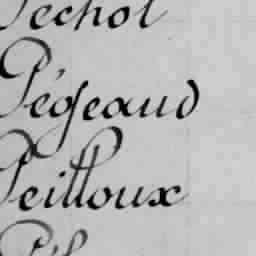 Pechot
Pégeaud
Peilloux